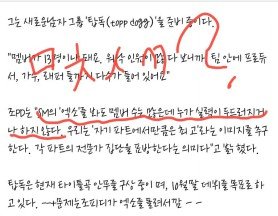 그는 새로운남자 그룹 '탑독(topp dogg)'을 준비 중이다.
"멤버가 13명이나 돼요. 워낙 인원이 많다 보니까. 팀 안에 프로듀
서, 가수, 래퍼 등까지 다수가 들어 있어요"
뭣이라?
조PD는 "SM의 '엑소'를 봐도 멤버 수는 많은데 누가 실력이 두드러지거
나 하지 않다. 우리는 '자기 파트에서만큼은 최고'라는 이미지를 추구
한다. 각 파트의 전문가 집단을 표방한다는 의미다"고 밝혔다.
탑독은 현재 타이틀곡 안무를 구상 중이며, 10월말 데뷔를 목표로 하
고 있다. ~→문제는조피디가 엑소를 돌려서깜 - -